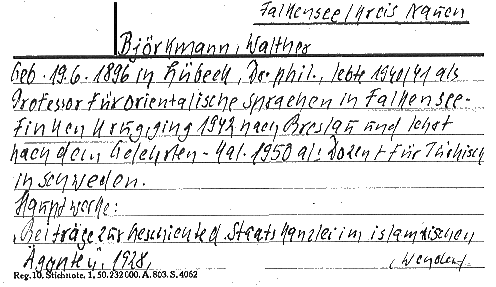 Falkensee/Kreis Nauen
Björkmann, Walther
Geb. 19.6.1896 in Lübeck, Dr. phil., lebte 1940/41 als
Professor für orientalische Sprachen in Falkensee-
Finkenkrug, ging 1942 nach Breslau und lehrt
nach dem Gelehrten-Kal. 1950 als Dozent für Türkisch
in Schweden.
Hauptwerke:
"Beiträge zur Geschichte d. Staatskanzlei im islamischen
Ägypten", 1928,
Reg. 10. Stichnote. 1, 50. 232000. A. 803. S. 4062